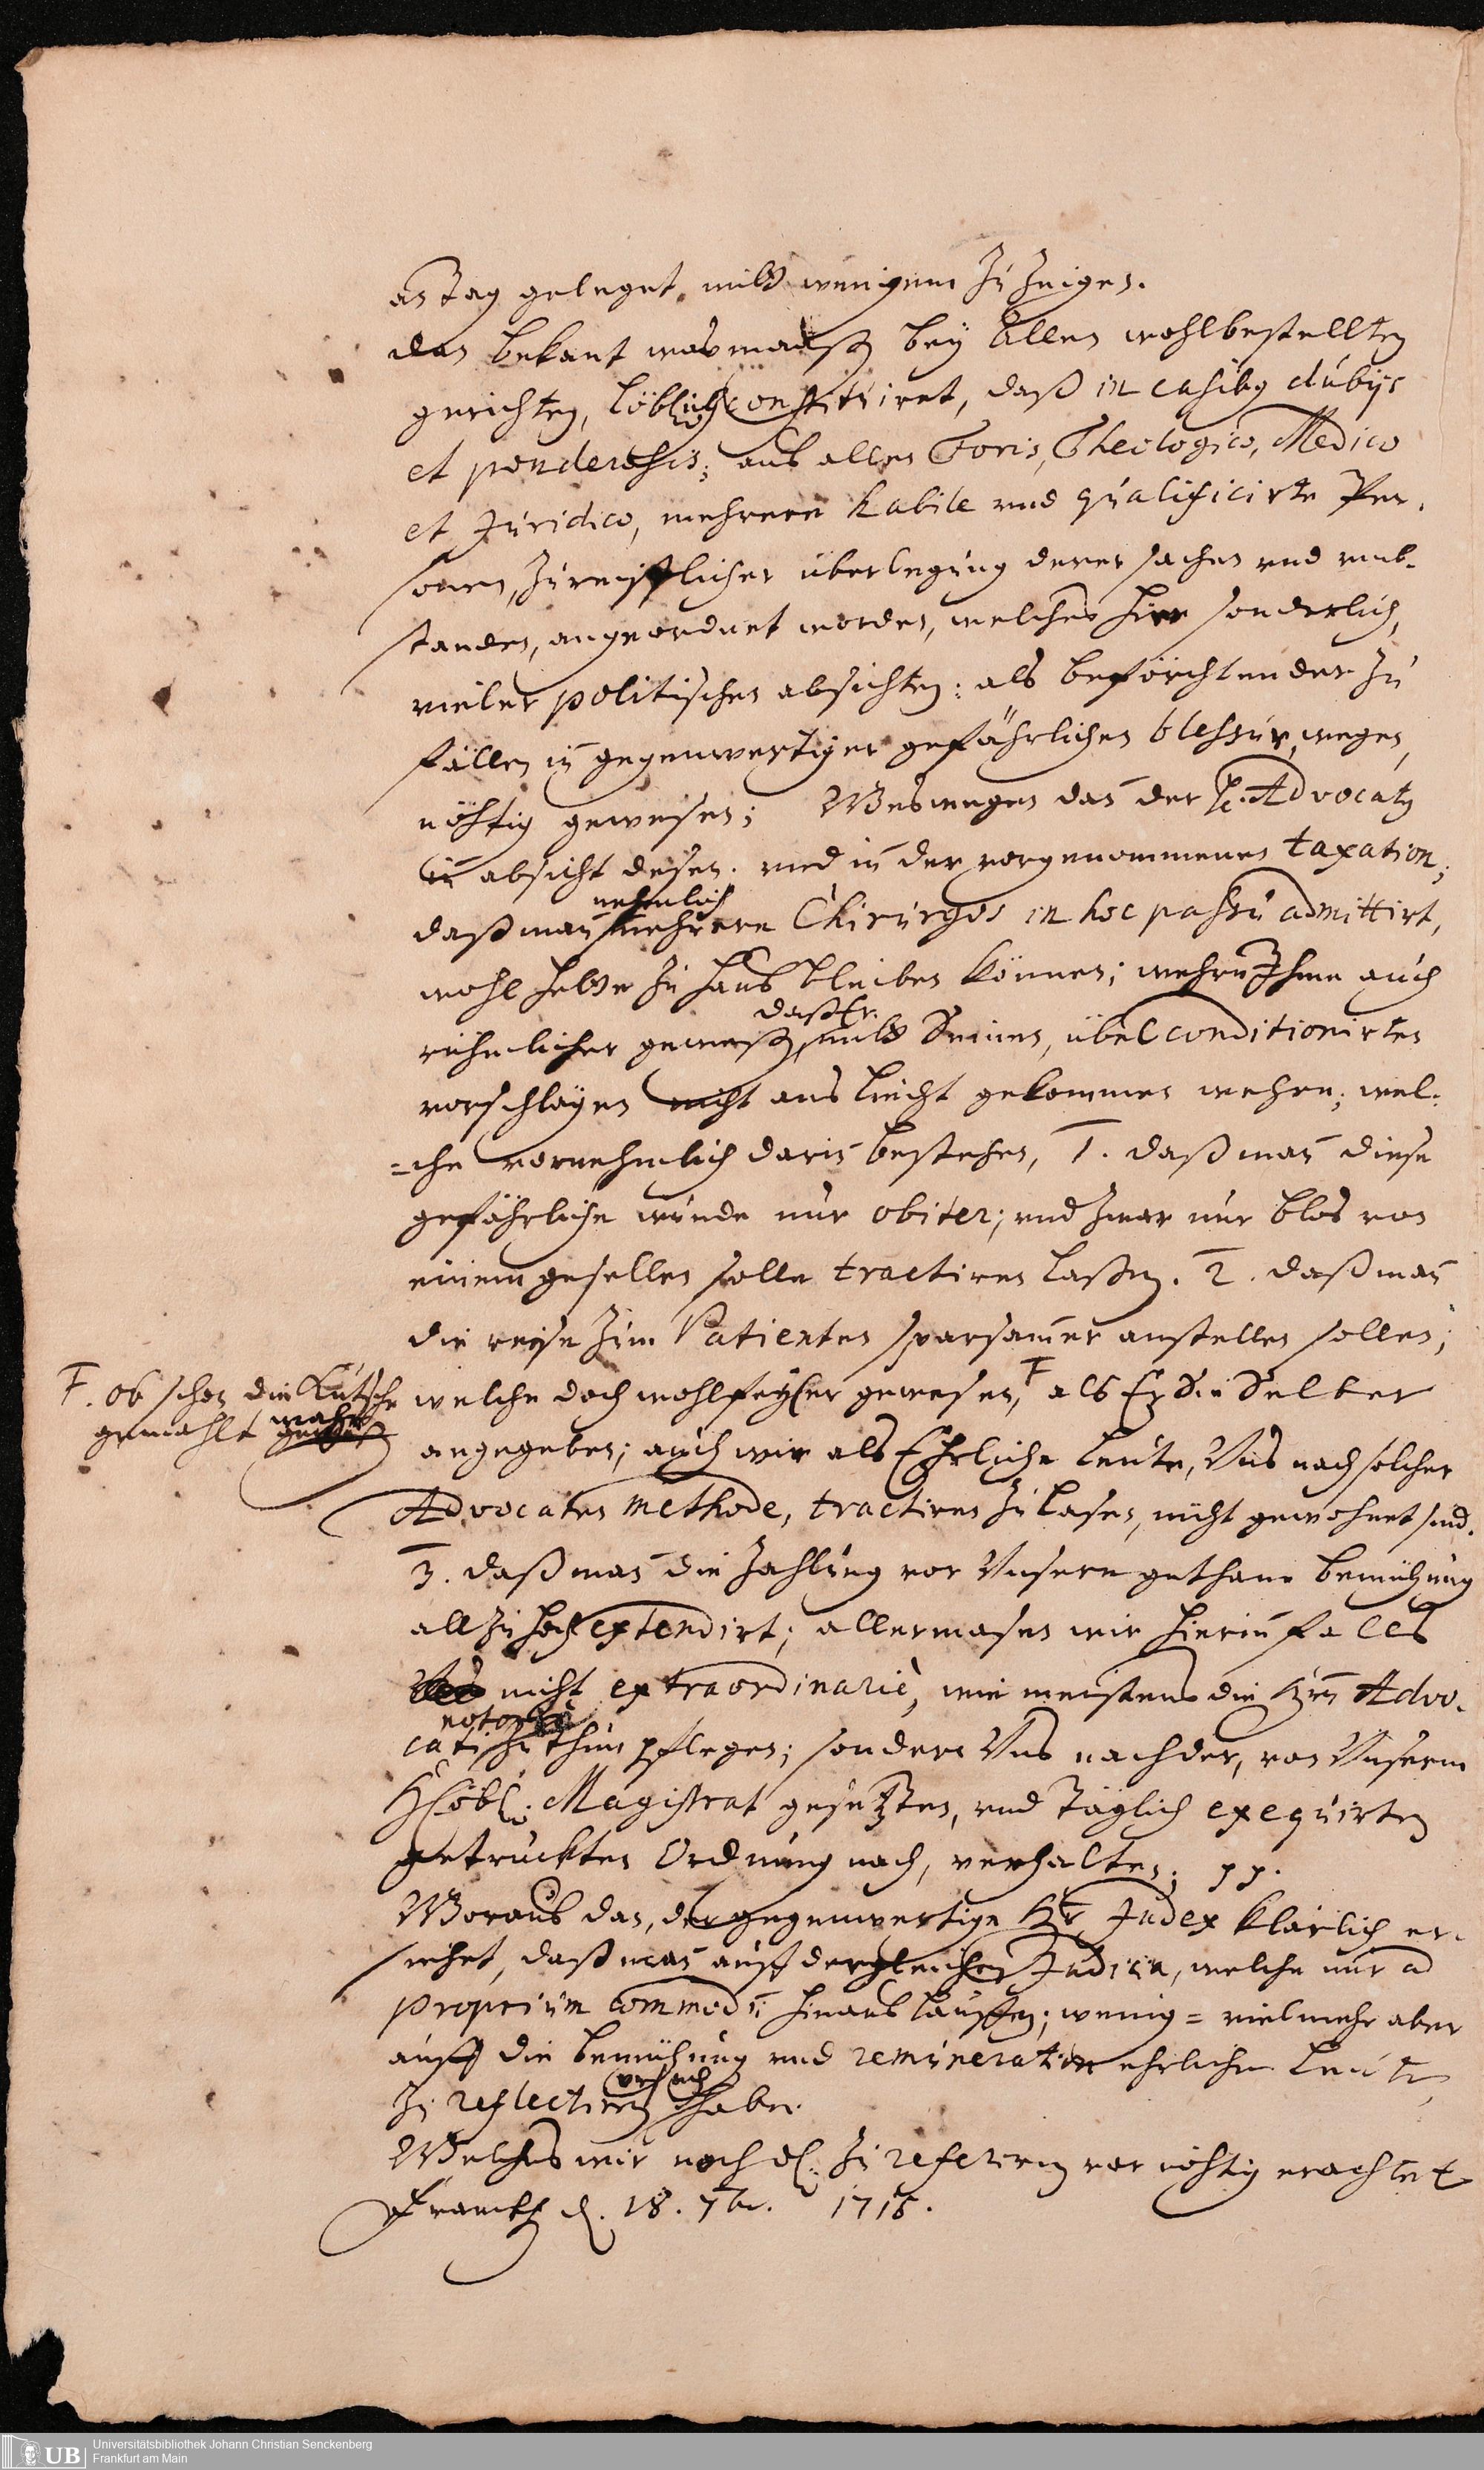 an Tag geleget, mitt wenigem zu zeigen.
dan bekant wasmaaßen bey allen wohlbestellten
gerichten, löblich constituiret, daß in casibus dubijs
et ponderosis; aus allen Foris, Theologico, Medico
et Juridico, mehrere habile und qualificirte Per-
sonen, zu reifflicher überlegung derer sachen und umb-
standen, angeordnet worden, welches hier sonderlich,
vieler politischen absichten: als beförchtender zu
fällen in gegenwertiger gefährlichen blessur, wegen,
nöhtig gewesen; Weswegen dan der H. Advocatus
in absicht dessen. und in der vorgenommenen taxation;
nehmlich
daß man mehrere Chirurgos in hoc passu admittirt,
wohl hette zu haus bleiben können; wehre Ihme auch
daß Er.
rühmlicher geweßen, mitt Seinen, übel conditionirten
vorschlägen nicht ans liecht gekommen wehre; wel-
=che vornehmlich darin bestehen, 1. daß man diese
gefährliche wunde nur obiter; und zwar nur blos von
einem gesellen solle tractiren laßen. 2. daß man
die reyse zum Patienten sparsamer anstellen sollen;
F. ob schon die Kutsche
gemahlt wahr
welche doch wohlfeyler gewesen, F als Er Sie Selber
angegeben; auch wir als Ehrliche leute, Uns nach solcher
Advocaten methode, tractiren zu lasen, nicht gewohnet sind.
3. daß man die Zahlung vor Unsere gethane bemühung
allzu hoch extendirt; allermasen wir hierin falls
nicht extraordinariè, wie meistens die Hrn Advo-
notorie
cati zu thun pflegen; sondern Uns nach der, von Unserm
Hlöbl. Magistrat gesetzten, und täglich exequirten
getruckten Ordnung nach, verhalten; pp.
Woraus dan, der gegenwertige Hr Judex klärlich er-
siehet, daß man auff dergleichen Judicia, welche nur ad
proprium commodum hinaus lauffen; wenig = vielmehr aber
auff die bemühung und remuneration ehrlicher leute,
ursach
zu reflectiren habe.
Welches wir noch zu referiren vor nöhtig erachtet
Franckf d. 18. 7br. 1715.
Universitätsbibliothek Johann Christian Senckenberg
Frankfurt am Main
UB